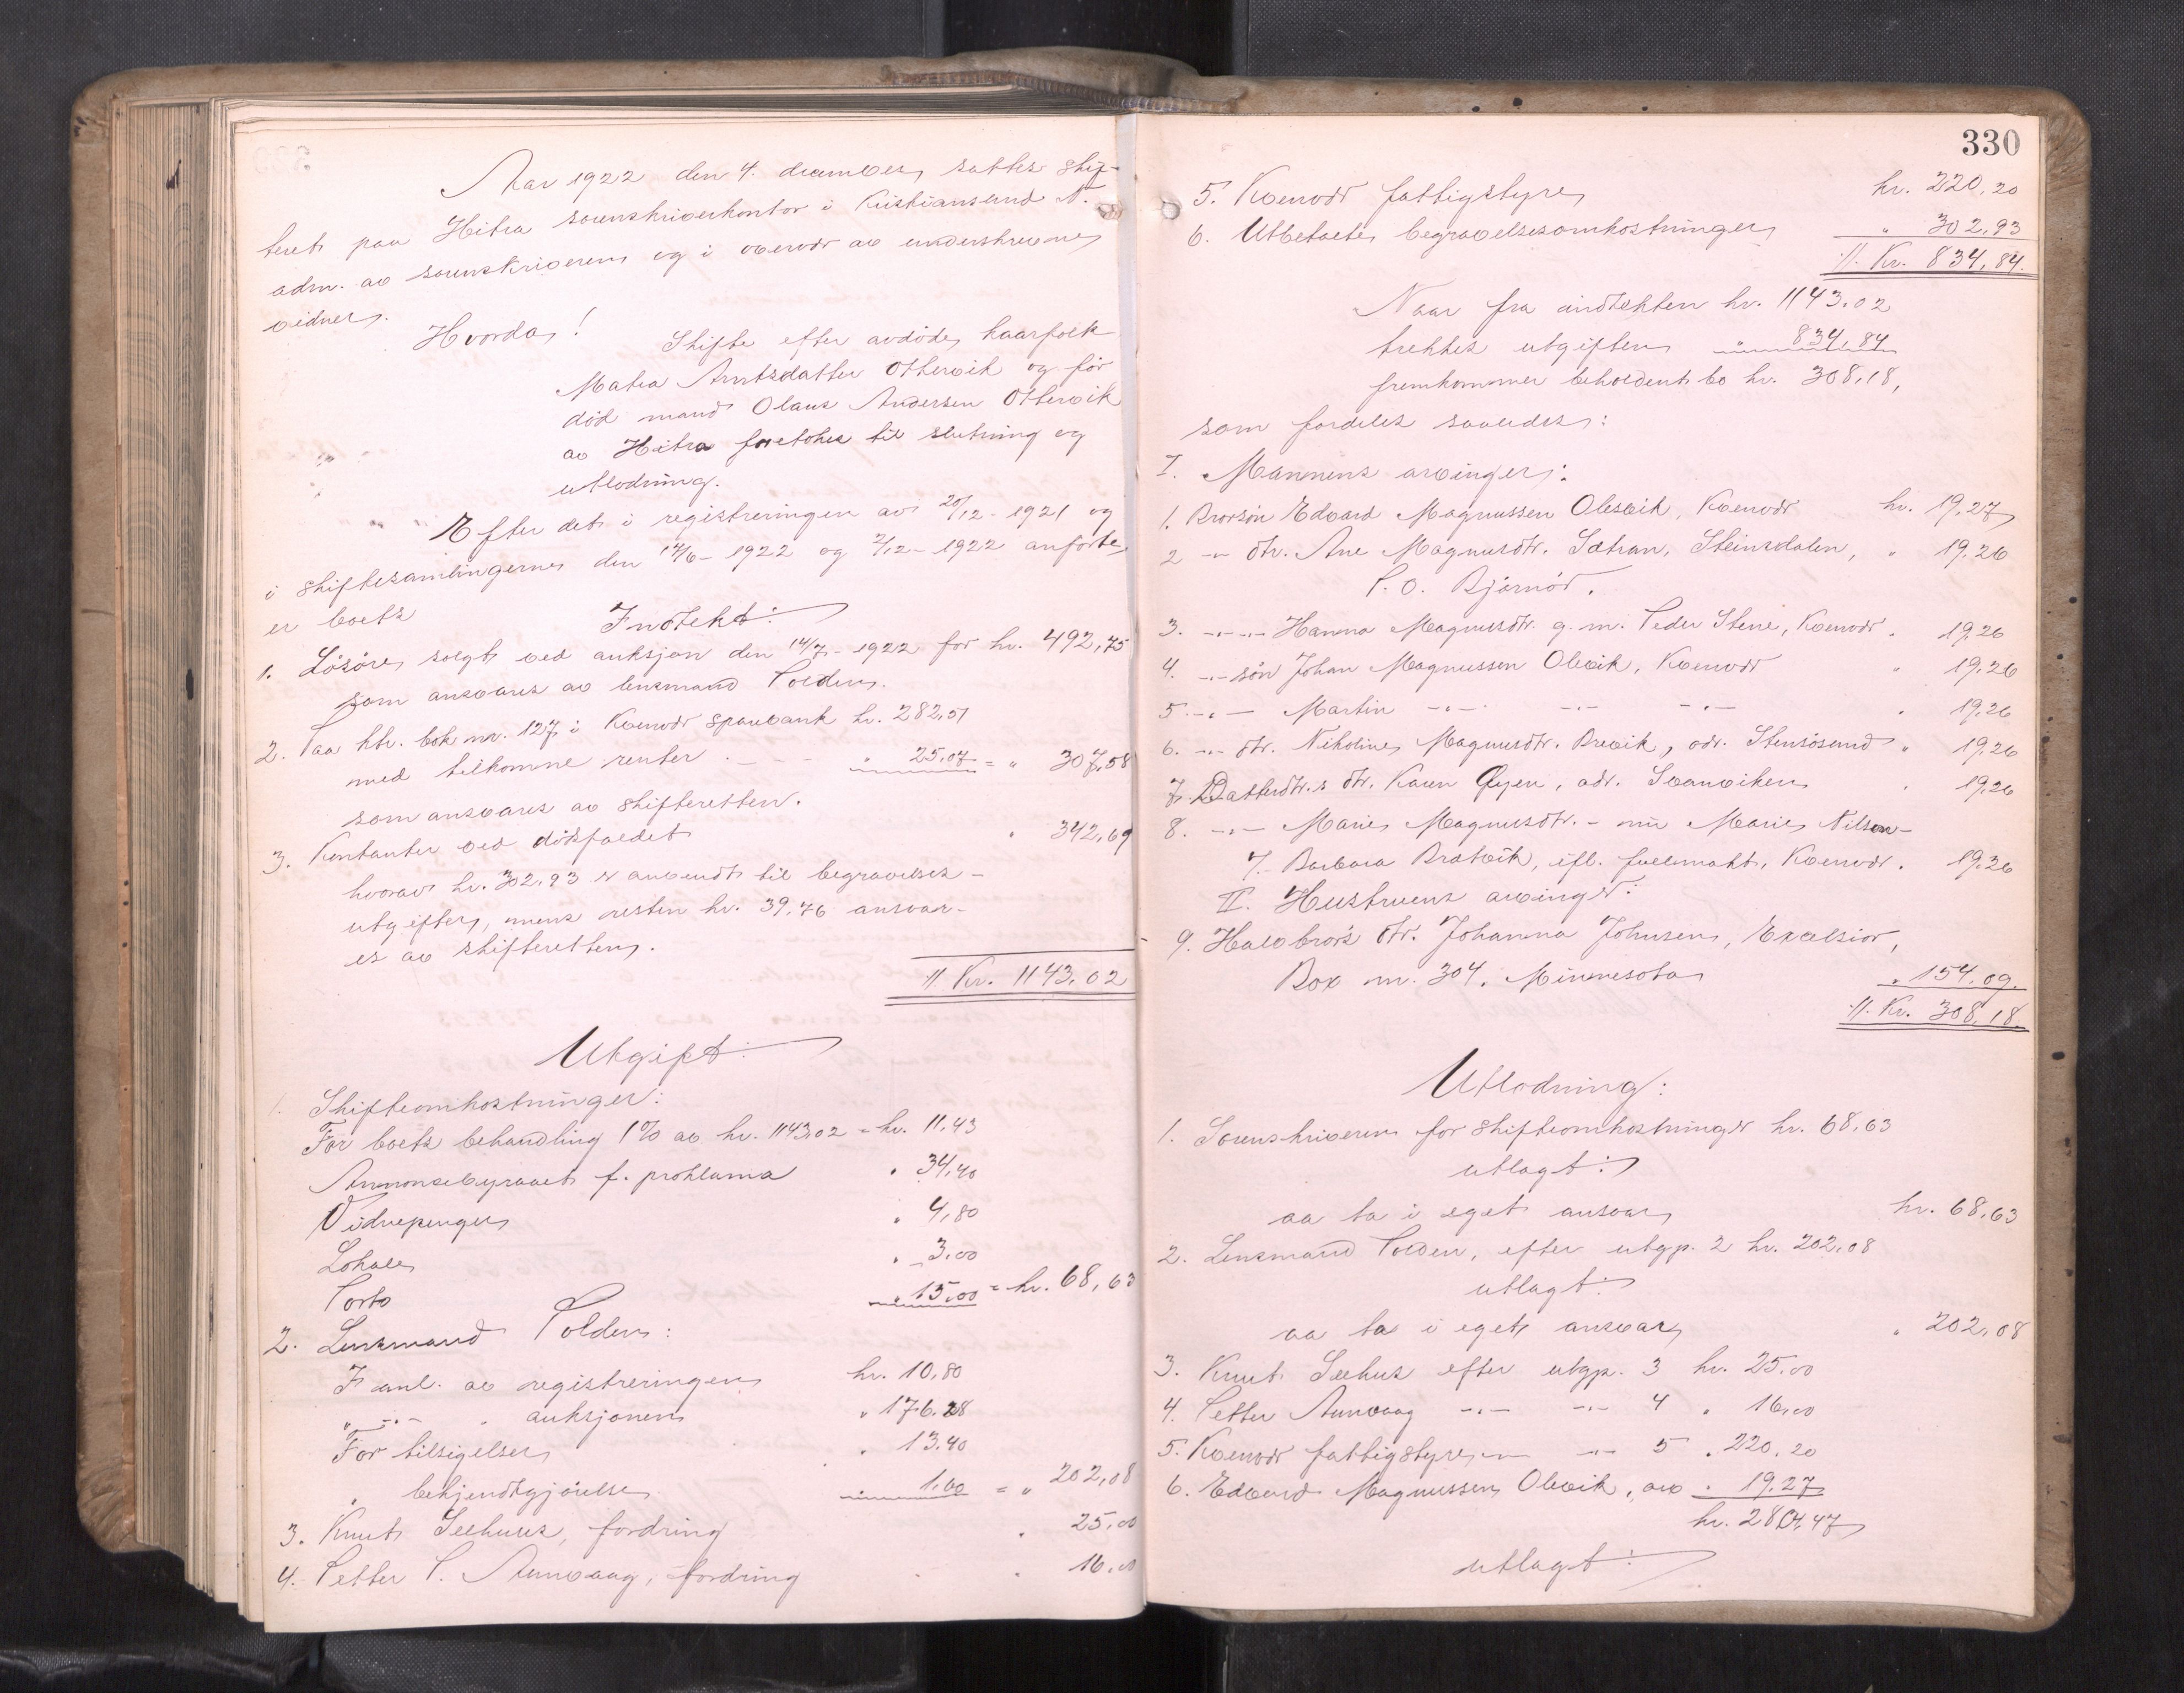 Aar 1922 den 4. december sattes skif-
teret paa Hitra sorenskriverkontor i Kristiansund N.
adm. av sorenskriveren og i overvær av underskrevne
vidner.
Hvorda!
Skifte efter avdøde kaarfolk
Matea Arntsdatter Ottervik og før
død mand Olaus Andersen Ottervik
av Hitra foretokes til slutning og
utlodning.
Efter det i registreringen av 20/12-1921 og
i skiftesamlingerne den 14/6-1922 og 2/12-1922 anførte
er boets
Indtekt:
1. Løsøre solgt ved auksjon den 14/7-1922 for kr. 492,75
som ansvares av lensmand Polden.
2. Paa ktr. bok nr. 127 i Kvenvær sparebank kr. 282,51
med tilkomne renter " 25,07 = " 307,58
som ansvares av skifteretten.
3. Kontanter ved dødsfaldet " 342,69
hvorav kr. 302,93 er anvendt til begravelses-
utgifter, mens resten kr. 39,76 ansvar-
es av skifteretten.
// Kr. 1143.02
Utgift:
1. Skifteomkostninger:
For boets behandling 1% av kr. 1143,02 = kr. 11,43
Annonsebyraaet f. proklama " 34,40
Vidnepenger " 4,80
Lokale " 3,00
Porto " 15,00 = kr. 68,63
2. Lensmand Polden:
I anl. av registreringen kr. 10,80
" -"- " auksjonen " 176.28
For tilsigelser " 13.40
" bekjendtgjørelse 1,60 = " 202,08
3. Knut Seehuus, fordring " 25,00
4. Petter P. Aunvaag, fordring " 16,00
330
5. Kvenvær fattigstyre kr. 220,20
6. Utbetalte begravelsesomkostninger " 302,93
//. Kr. 834,84.
Naar fra indtekten kr. 1143.02
trekkes utgiften " 834,84
fremkommer beholdent bo kr. 308,18,
som fordeles saaledes:
I. Mannens arvinger:
1. Brorsøn Edvard Magnussen Olesvik, Kvenvær kr. 19,27
2 -"- dtr. Ane Magnusdtr. Sætran, Steinsdalen, " 19.26
P.O. Bjørnør.
3. -"- -"- Hanna Magnusdtr. g.m. Peder Stene, Kvenvær " 19.26
4. -"- søn Johan Magnussen Olsvik, Kvenvær " 19.26
5 -"- — Martin -"- -"- -"- " 19.26
6. -"- dtr. Nikoline Magnusdtr. Brevik, adr. Stensøsund " 19.26
7. Datterdtr.s dtr. Karen Øyen, adr. Svanviken " 19.26
8. -"- Marie Magnusdtr. - nu Marie Nilsen-
7. Barbara Bratvik, ifl. fullmakt, Kvenvær. 19.26
II. Hustruens arvinger:
9. Halvbrors dtr. Johanna Johnsen, Excelsior,
Box nr. 304. Minnesota " 154.09.
//. Kr. 308,18.
Utlodning:
1. Sorenskriveren for skifteomkostninger kr. 68.63
utlagt:
aa ta i eget ansvar kr. 68.63
2. Lensmand Polden, efter utgp. 2 kr. 202,08
utlagt:
aa ta i eget ansvar " 202,08
3. Knut Seehus efter utgp. 3 kr. 25.00
4. Petter Aunvaag -"- -"- 4 " 16,00
5. Kvenvær fattigstyre -"- -"- 5 " 220.20
6. Edvard Magnussen Olsvik, arv " 19.27
kr. 280,47
utlagt: